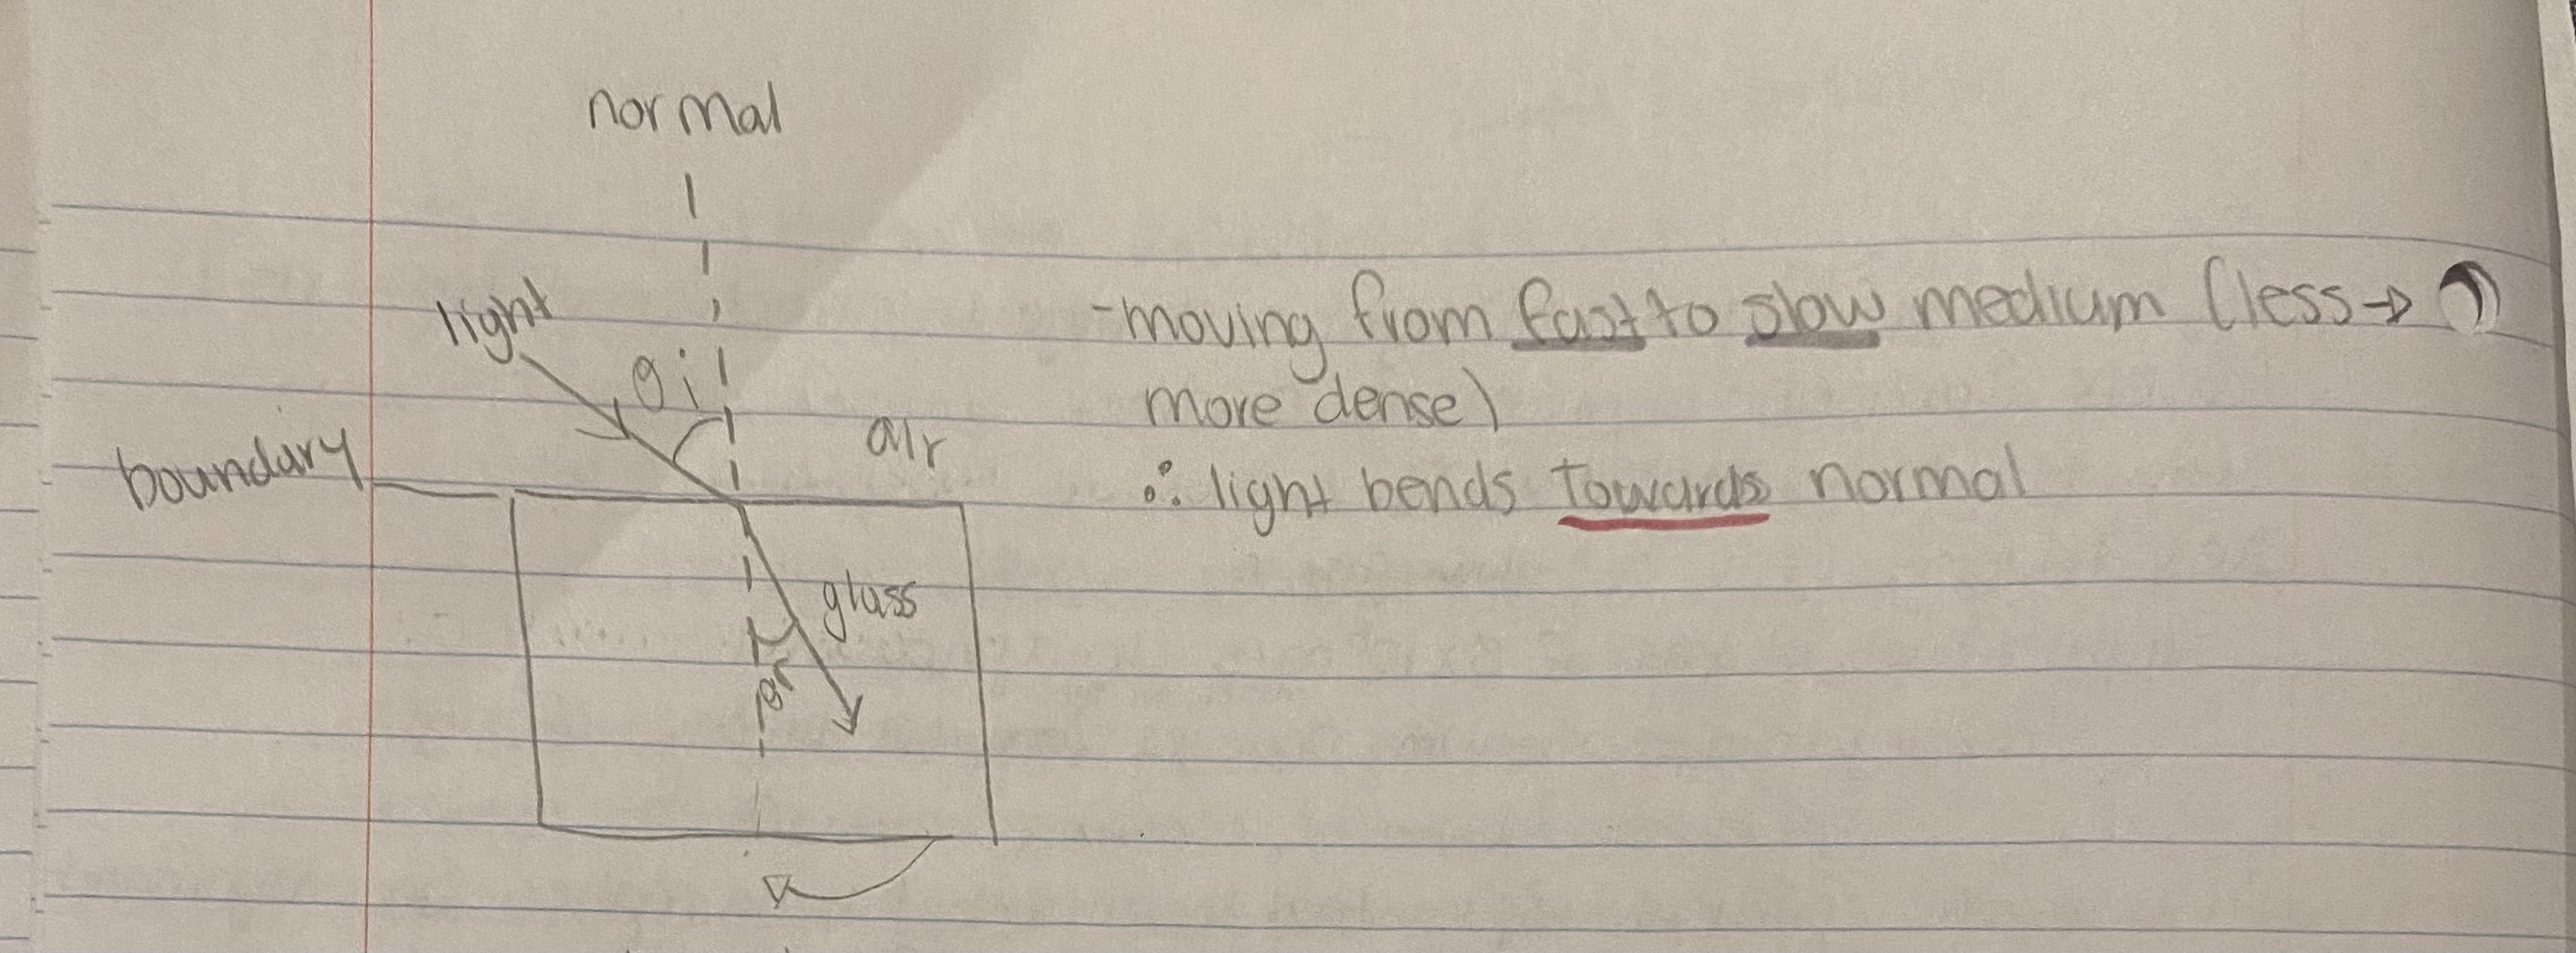 normal
light
θi
air
boundary
glass
θr
-moving from fast to slow medium (less →
more dense)
∴ light bends towards normal